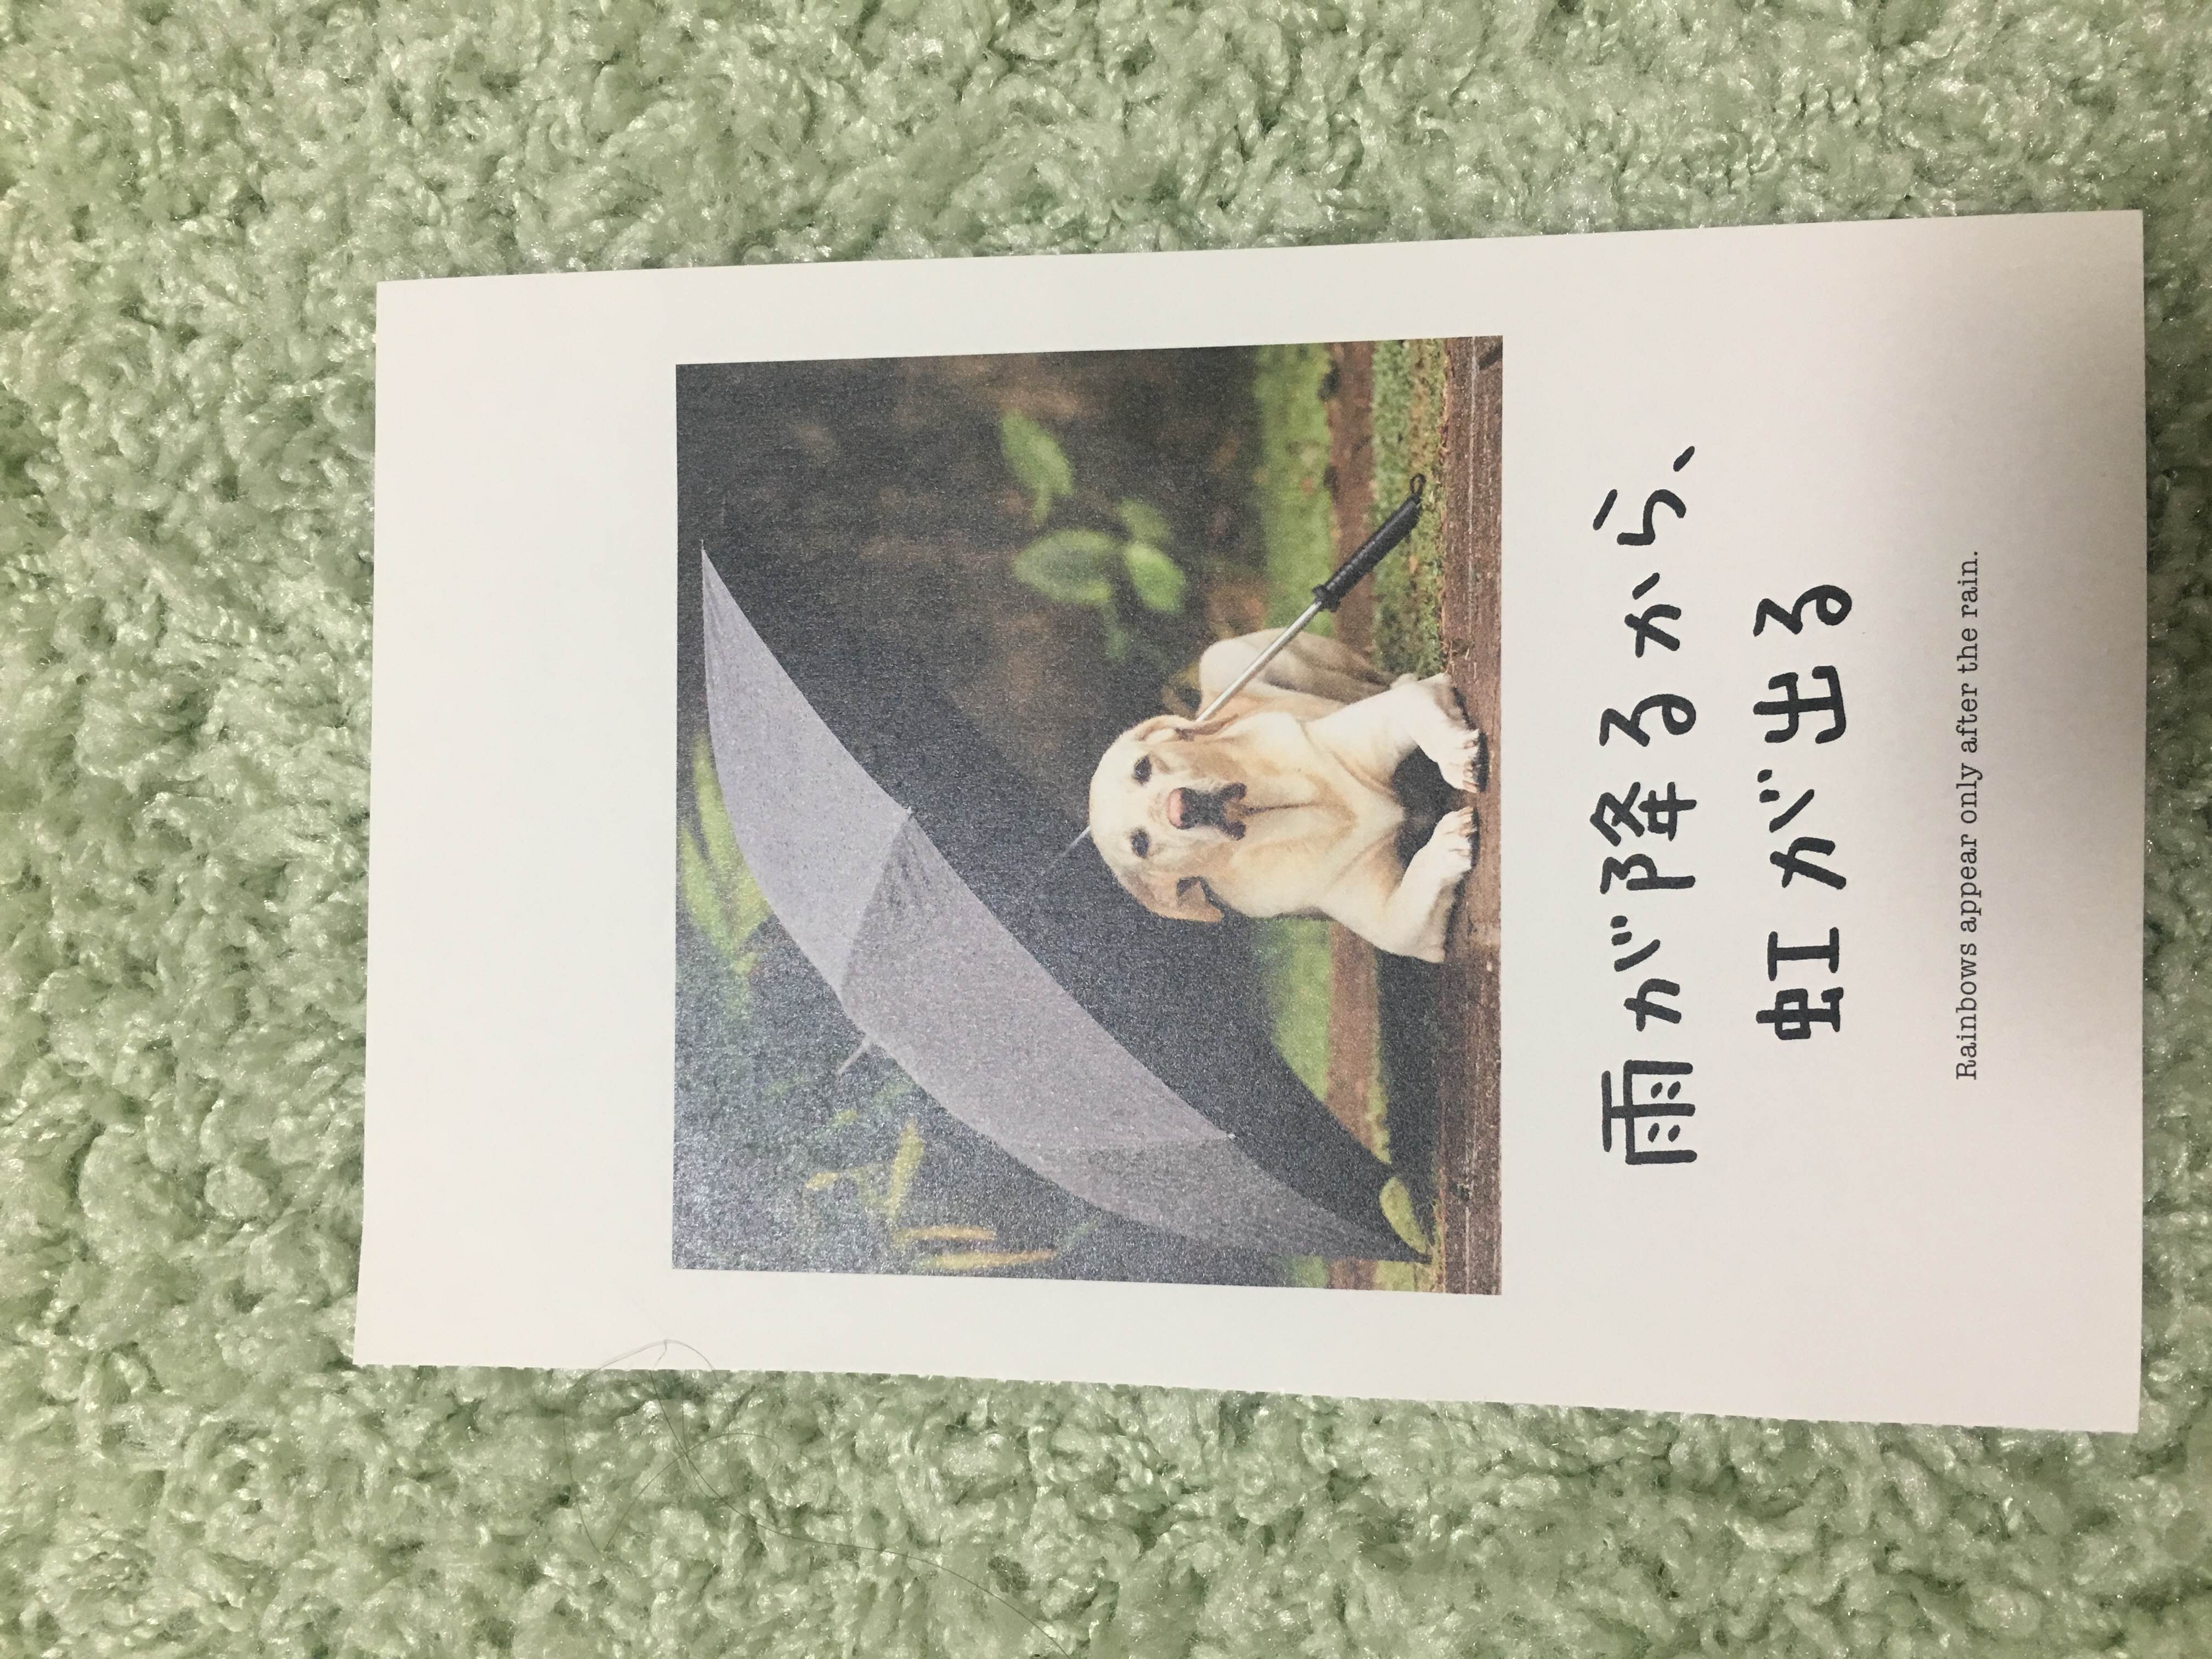 雨が降るから、
虹が出る
Rainbows appear only after the rain.